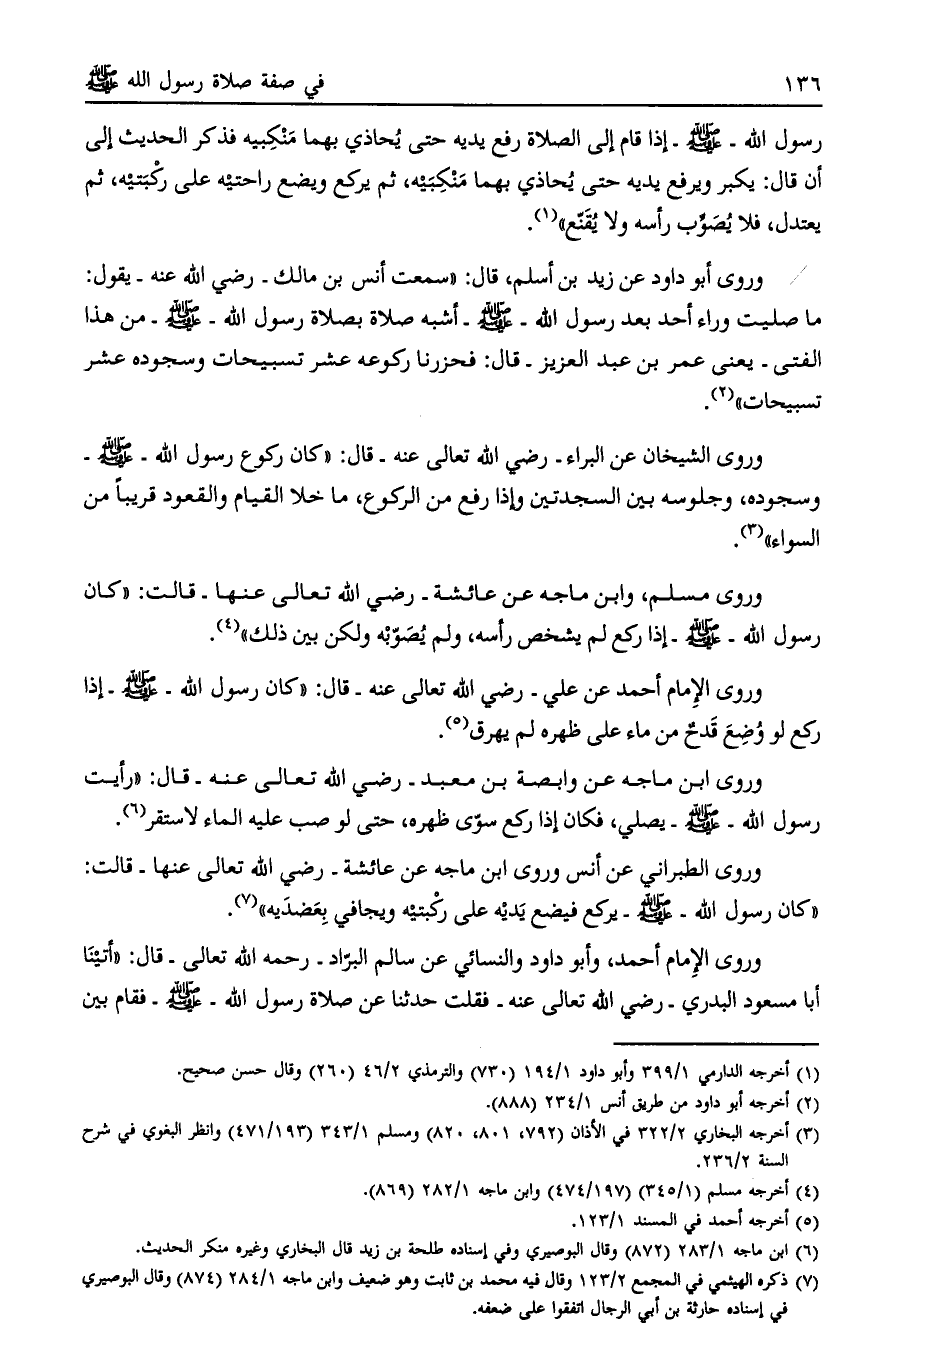 ١٣٦ في صفة صلاة رسول الله ﷺ
رسول الله ـ ﷺ ـ إذا قام إلى الصلاة رفع يديه حتى يُحاذي بهما مَنْكِبيه فذكر الحديث إلى
أن قال: يكبر ويرفع يديه حتى يُحاذي بهما مَنْكِبَيْه، ثم يركع ويضع راحتيْه على ركْبَتيْه، ثم
يعتدل، فلا يُصَوِّب رأسه ولا يُقَنّع»(١).
وروى أبو داود عن زيد بن أسلم، قال: «سمعت أنس بن مالك ـ رضي الله عنه ـ يقول:
ما صليت وراء أحد بعد رسول الله ـ ﷺ ـ أشبه صلاة بصلاة رسول الله ـ ﷺ ـ من هذا
الفتى ـ يعنى عمر بن عبد العزيز ـ قال: فحزرنا ركوعه عشر تسبيحات وسجوده عشر
تسبيحات»(٢).
وروى الشيخان عن البراء ـ رضي الله تعالى عنه ـ قال: «كان ركوع رسول الله ـ ﷺ ـ
وسجوده، وجلوسه بين السجدتين وإذا رفع من الركوع، ما خلا القيام والقعود قريباً من
السواء»(٣).
وروى مسلم، وابن ماجه عن عائشة ـ رضي الله تعالى عنها ـ قالت: «كان
رسول الله ـ ﷺ ـ إذا ركع لم يشخص رأسه، ولم يُصَوّبْه ولكن بين ذلك»(٤).
وروى الإمام أحمد عن علي ـ رضي الله تعالى عنه ـ قال: «كان رسول الله ـ ﷺ ـ إذا
ركع لو وُضِعَ قَدحٌ من ماء على ظهره لم يهرق(٥).
وروى ابن ماجه عن وابصة بن معبد ـ رضي الله تعالى عنه ـ قال: «رأيت
رسول الله ـ ﷺ ـ يصلي، فكان إذا ركع سوّى ظهره، حتى لو صب عليه الماء لاستقر(٦).
وروى الطبراني عن أنس وروى ابن ماجه عن عائشة ـ رضي الله تعالى عنها ـ قالت:
«كان رسول الله ـ ﷺ ـ يركع فيضع يَديْه على ركْبتيْه ويجافي بِعَضدَيه»(٧).
وروى الإمام أحمد، وأبو داود والنسائي عن سالم البرّاد ـ رحمه الله تعالى ـ قال: «أتيْنَا
أبا مسعود البدري ـ رضي الله تعالى عنه ـ فقلت حدثنا عن صلاة رسول الله ـ ﷺ ـ فقام بين
(١) أخرجه الدارمي ٣٩٩/١ وأبو داود ١٩٤/١ (٧٣٠) والترمذي ٤٦/٢ (٢٦٠) وقال حسن صحيح.
(٢) أخرجه أبو داود من طريق أنس ٢٣٤/١ (٨٨٨).
(٣) أخرجه البخاري ٣٢٢/٢ في الأذان (٧٩٢، ٨٠١، ٨٢٠) ومسلم ٣٤٣/١ (٤٧١/١٩٣) وانظر البغوي في شرح
السنة ٢٣٦/٢.
(٤) أخرجه مسلم (٣٤٥/١) (٤٧٤/١٩٧) وابن ماجه ٢٨٢/١ (٨٦٩).
(٥) أخرجه أحمد في المسند ١٢٣/١.
(٦) ابن ماجه ٢٨٣/١ (٨٧٢) وقال البوصيري وفي إسناده طلحة بن زيد قال البخاري وغيره منكر الحديث.
(٧) ذكره الهيثمي في المجمع ١٢٣/٢ وقال فيه محمد بن ثابت وهو ضعيف وابن ماجه ٢٨٤/١ (٨٧٤) وقال البوصيري
في إسناده حارثة بن أبي الرجال اتفقوا على ضعفه.